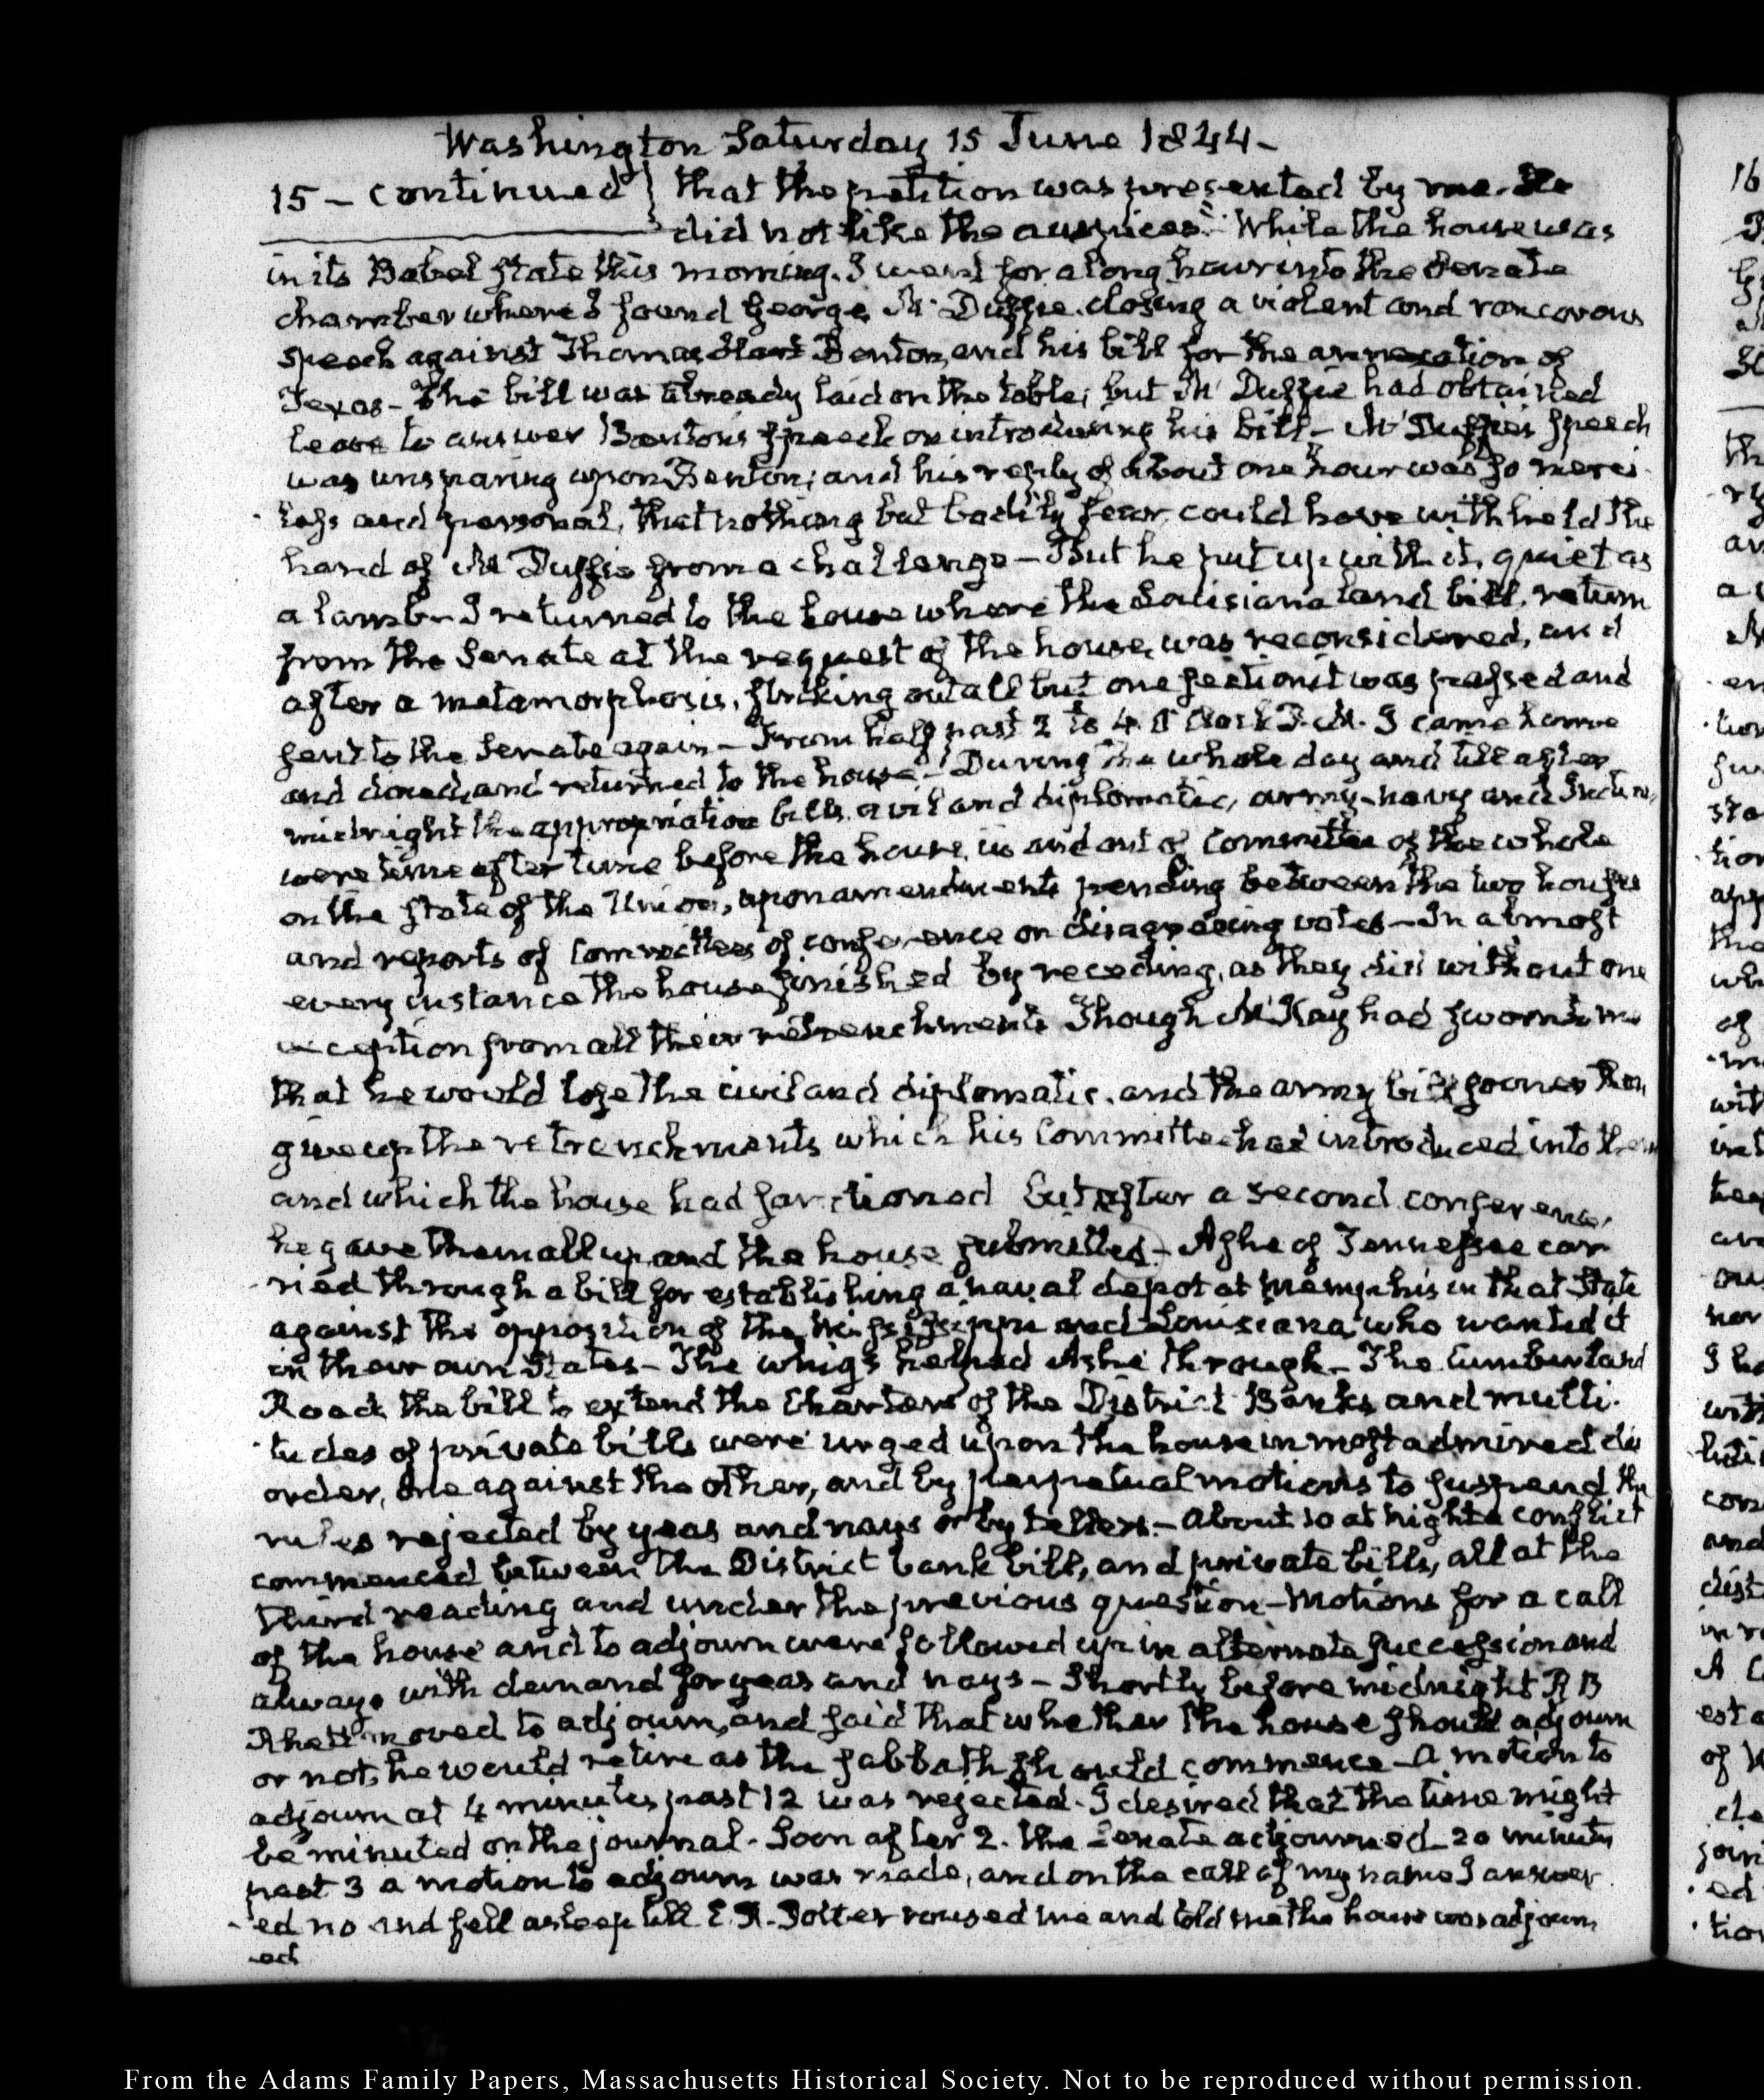 Washington Saturday 15 June 1844-
15 - continued } that the petition was presented by me. He
did not like the auspices. While the house was
in its Babel state this morning. I went for a long hour into the Senate
chamber where I found George McDuffie closing a violent and rancorous
speech against Thomas Hart Benton, and his bill for the annexation of
Texas - The bill was already laid on the table; but McDuffie had obtained
leave to answer Benton's speech on introducing his bill - McDuffie's speech
was unsparing upon Benton; and his reply of about one hour was so merci-
less and personal, that nothing but bodily fear could have withheld the
hand of McDuffie from a challenge - But he put up with it, quiet as
a lamb - I returned to the house where the Louisiana land bill, return
from the Senate at the request of the house, was reconsidered, and
after a metamorphosis, striking out all but one section it was passed and
sent to the Senate again - From half past 2 to 4 O'Clock P.M. I came home
and dined, and returned to the house - During the whole day and till after
midnight the appropriation bills, civil and diplomatic, army - navy and Indian,
were time after time before the house, in and out of Committee of the whole
on the state of the Union, upon amendments pending between the two houses
and reports of Committees of conference on disagreeing votes - In almost
every instance the house finished by receding, as they did without one
exception from all their retrenchments Though McKay had sworn to me
that he would lose the civil and diplomatic, and the army bill sooner than
give up the retrenchments which his Committee had introduced into them
and which the house had sanctioned But after a second conference,
he gave them all up, and the house submitted - Ashe of Tennessee car
ried through a bill for establishing a naval depot at Memphis in that State
against the opposition of the Mississippi and Louisiana who wanted it
in their own States - The whigs helped Ashe through - The Cumberland
Road, the bill to extend the Charters of the District Banks and multi-
tudes of private bills were urged upon the house in most admired dis
order, one against the other, and by perpetual motions to suspend the
rules rejected by yeas and nays or by tellers. - About 10 at night a conflict
commenced between the District bank bill, and private bills, all at the
third reading and under the previous question - Motions for a call
of the house and to adjourn were followed up in alternate succession and
always with demand for yeas and nays - Shortly before midnight R B
Rhett moved to adjourn, and said that whether the house should adjourn
or not, he would retire as the sabbath should commence - A motion to
adjourn at 4 minutes past 12 was rejected. I desired that the time might
be minuted on the journal - Soon after 2. the Senate adjourned - 20 minutes
past 3 a motion to adjourn was made, and on the call of my name I answer
-ed no and fell asleep till E. R. Potter roused me and told me the house was adjourn
-ed
16
From the Adams Family Papers, Massachusetts Historical Society. Not to be reproduced without permission.